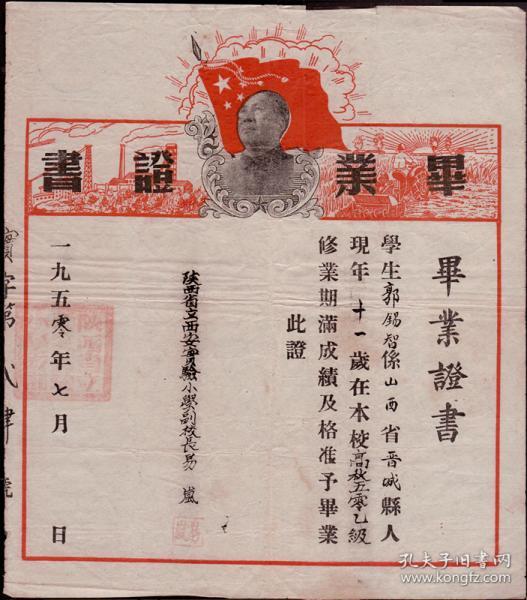 畢業證書
畢業證書
學生郭錫智係山西省晋城縣人
現年十一歲在本校高秋五零乙級
修業期滿成績及格准予畢業
此證
陝西省立西安實驗小學副校長易嵐
一九五零年七月 日
實字第
孔夫子旧书网
www.kongfz.com